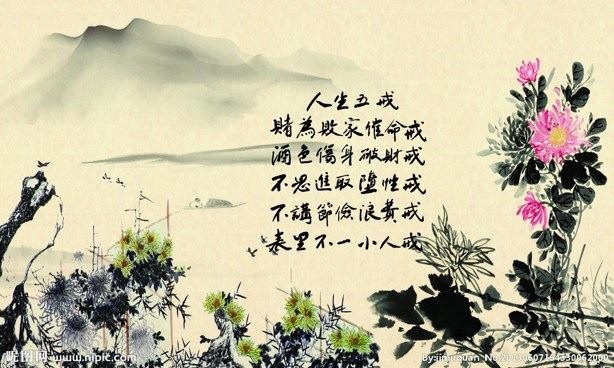 人生五戒
賭為敗家催命戒
酒色傷身破財戒
不思進取墮性戒
不講節儉浪費戒
表里不一小人戒
昵图网 www.nipic.com
By:jimiquan No:20130607164350062000